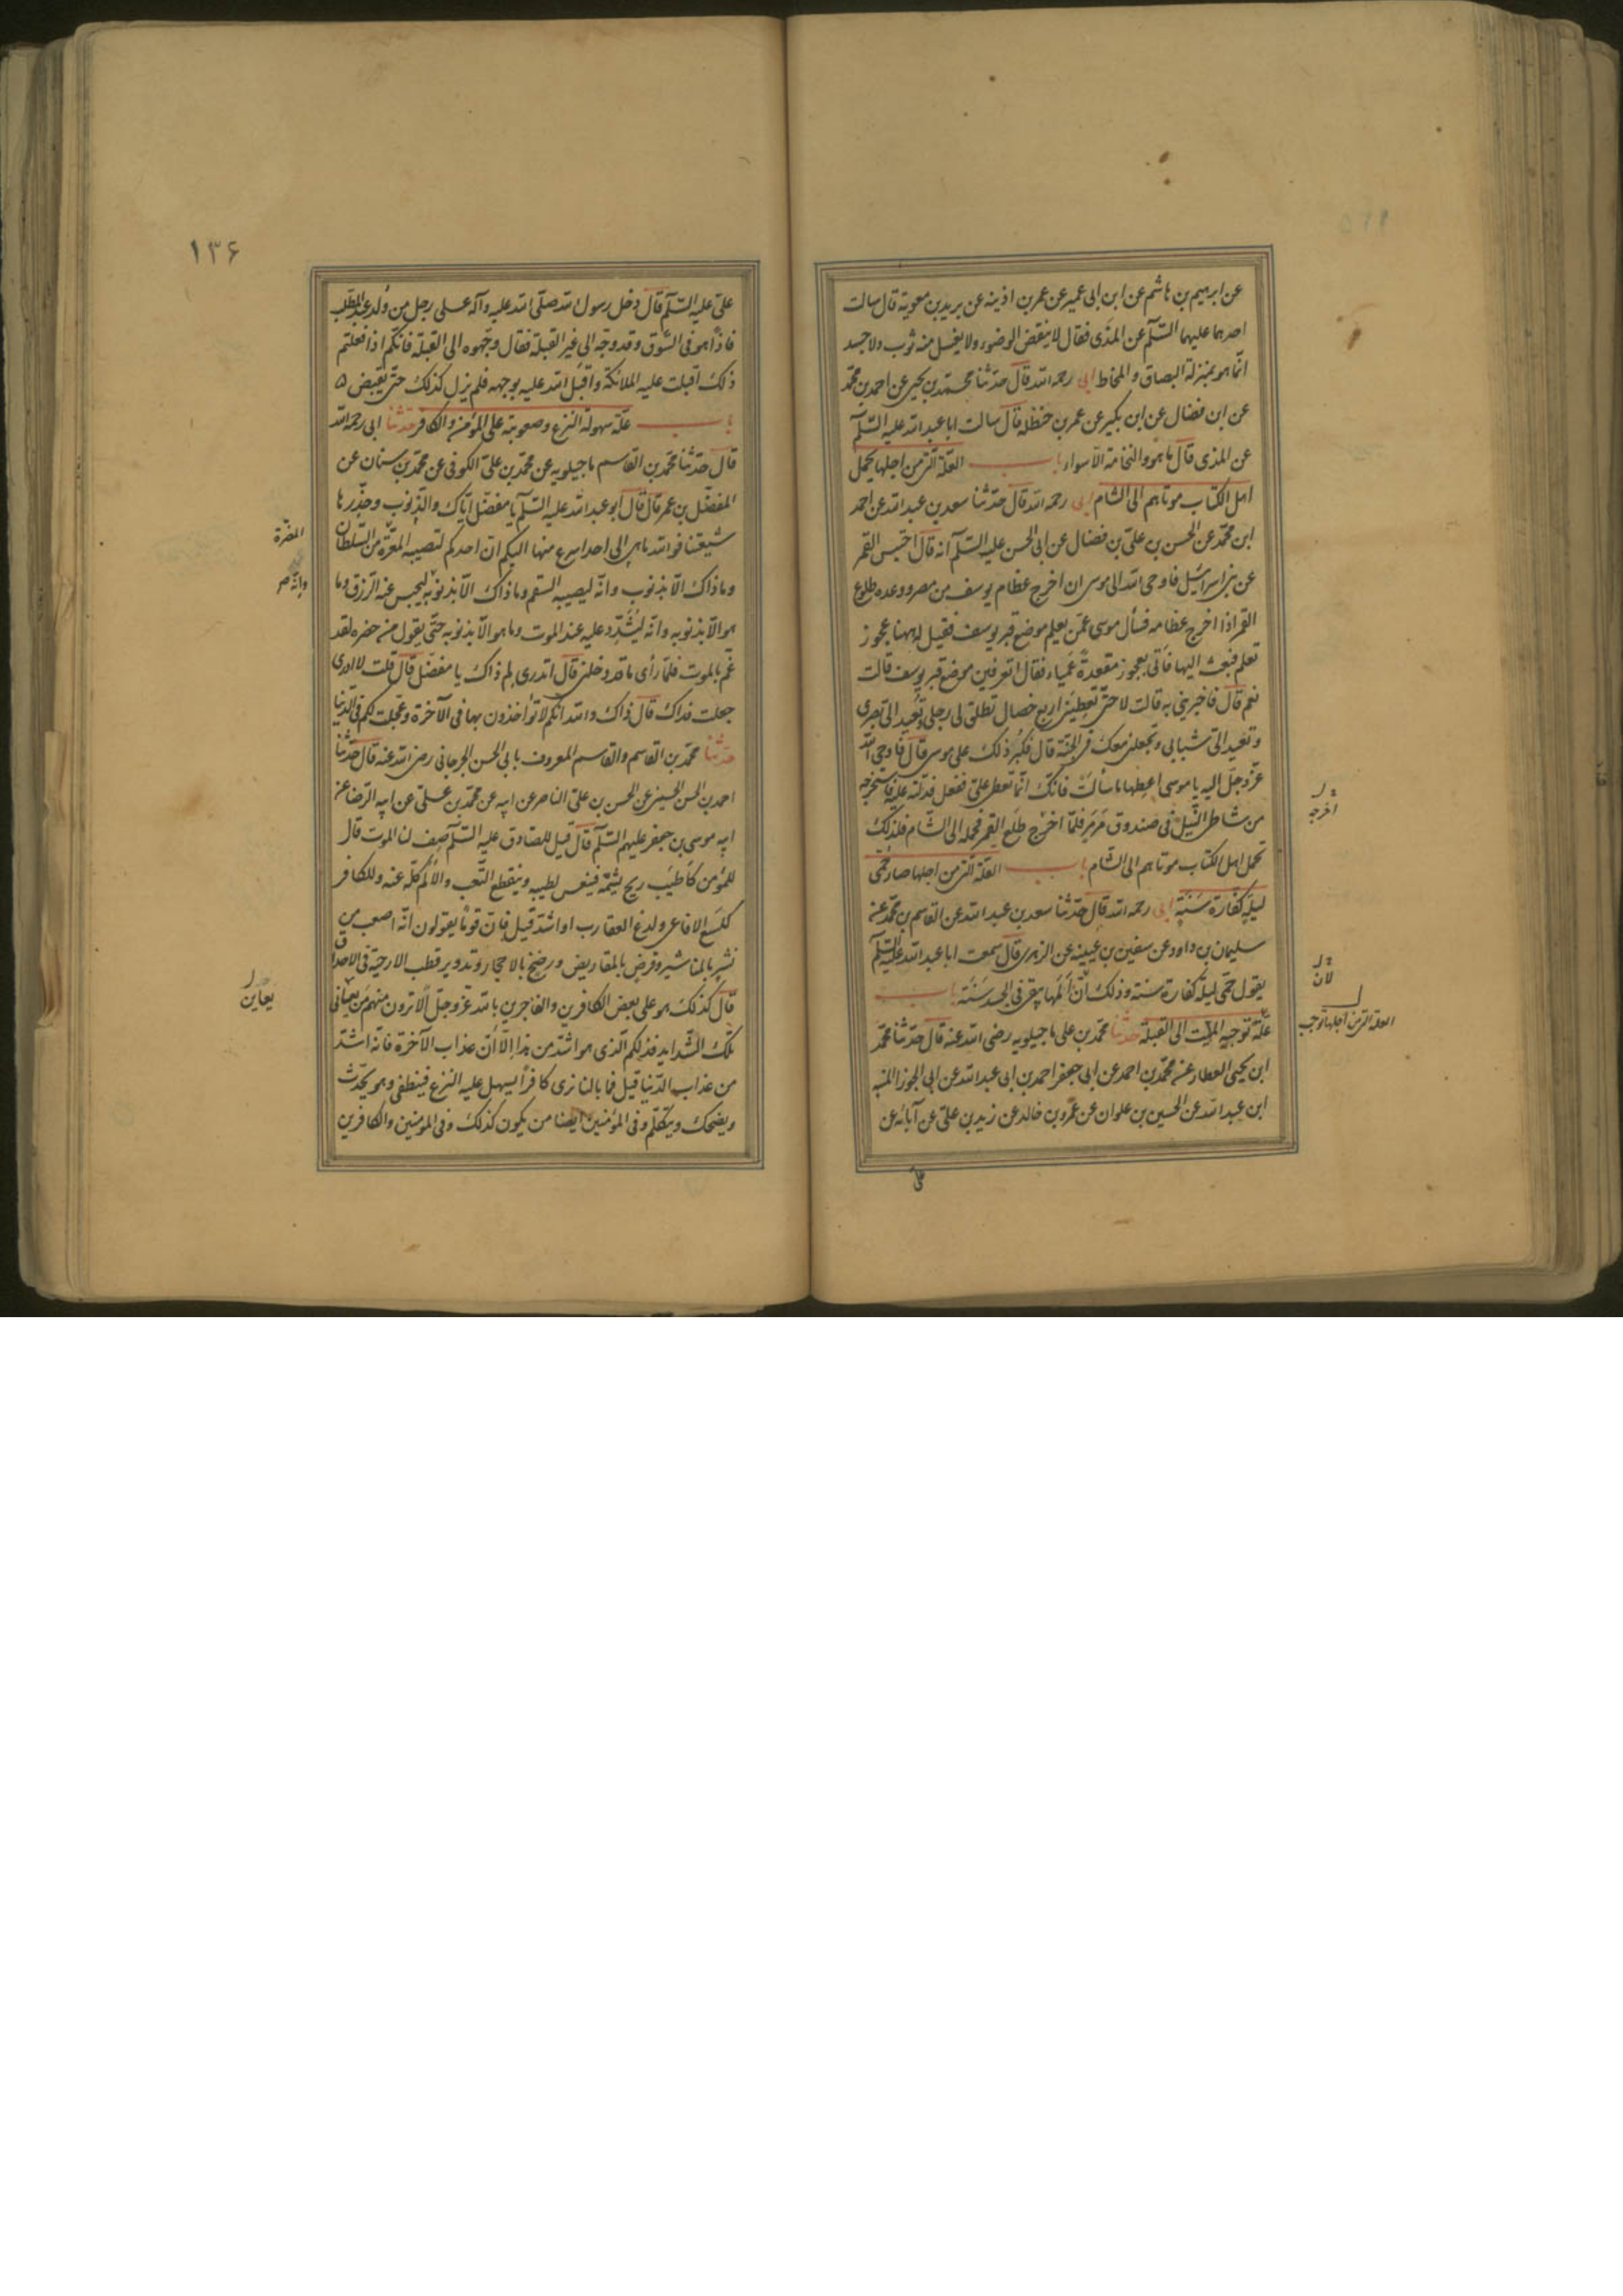 عن ابرهيم بن هاشم عن ابن ابى عمير عن عمر بن اذينه عن بريد بن معوية قال سالت
احدهما عليهما السّلم عن المذى فقال لا ينقض الوضوء ولا يغسل منه ثوب ولا جسد
انّما هو بمنزلة البصاق والمخاط ابى رحمه الله قال حدّثنا محمّد بن يحيى عن احمد بن محمّد
عن ابن فضال عن ابن بكير عن عمر بن حنظله قال سالت ابا عبد الله عليه السّلم
عن المذى قال ما هو والنخامة الّا سواء باب العلّة الّتى من اجلها يحمل
اهل الكتاب موتاهم الى الشام ابى رحمه الله قال حدّثنا سعد بن عبد الله عن احمد
ابن محمّد عن الحسن بن علىّ بن فضال عن ابى الحسن عليه السّلم انه قال احتبس القمر
عن بنى اسرائيل فاوحى الله الى موسى ان اخرج عظام يوسف من مصر ووعده طلوع
القمر اذا اخرج عظامه فسأل موسى عمّن يعلم موضع قبر يوسف فقيل له ههنا عجوز
تعلم فبعث اليها فأتى بعجوز مقعدة عمياء فقال اتعرفين موضع قبر يوسف قالت
نعم قال فاخبرينى به قالت لا حتّى تعطينى اربع خصال تطلق لى رجلى وتعيد الىّ بصرى
وتعيد الىّ شبابى وتجعلنى معك فى الجنّة قال فكبُر ذلك على موسى قال فاوحى الله
عزّ وجلّ اليه يا موسى اعطها ما سألت فانّك انّما تعطى علىّ ففعل فدلّته عليه فاستخرجه
من شاطى النّيل فى صندوق مرمر فلمّا اخرج طلع القمر فحمله الى الشّام فلذلك
تحمل اهل الكتاب موتاهم الى الشام باب العلّة الّتى من اجلها صار حمّى
ليلة كفّارة سَنَة ابى رحمه الله قال حدّثنا سعد بن عبد الله عن القاسم بن محمّد عن
سليمان بن داود عن سفين بن عيينه عن الزهرى قال سمعت ابا عبد الله عليه السّلم
يقول حمّى ليلة كفارة سنة وذلك انّ أَلَمها يبقى فى الجسد سَنَة باب
علّة توجيه الميّت الى القبلة حدثنا محمّد بن على ماجيلويه رضى الله عنه قال حدّثنا محمّد
ابن يحيى العطار عن محمّد بن احمد عن ابى جعفر احمد بن ابى عبد الله عن ابى الجوزا المنبه
ابن عبد الله عن الحسين بن علوان عن عمرو بن خالد عن زيد بن علىّ عن آبائه عن
اخرجه
لان
العلة التى من اجلها توجب
على
١٣۶
علىّ عليه السّلم قال دخل رسول الله صلّى الله عليه وآله على رجل من وُلد عبد المطّلب
فاذا هو فى السّوق وقد وجّه الى غير القبلة فقال وجّهوه الى القبلة فانّكم اذا فعلتم
ذلك اقبلت عليه الملائكة واقبل الله عليه بوجهه فلم يزل كذلك حتّى يقبض ٥
باب علّة سهولة النزع وصعوبته على المؤمن والكافر حدثنا ابى رحمه الله
قال حدّثنا محمّد بن القاسم ماجيلويه عن محمّد بن علىّ الكوفى عن محمّد بن سنان عن
المفضّل بن عمر قال قال ابو عبد الله عليه السّلم يا مفضّل ايّاك والذّنوب وحذّرها
شيعتنا فوالله ما هى الى احد اسرع منها اليكم ان احدكم لتصيبه المعرّة من السّلطان
وما ذاك الّا بذنوبه وانّه ليصيبه السقم وما ذاك الّا بذنوبه ليحبس عنه الرّزق وما
هو الّا بذنوبه وانّه ليُشدّد عليه عند الموت وما هو الّا بذنوبه حتّى يقول من حضره لقد
غُمّ بالموت فلمّا رأى ما قد دخلنى قال اتدرى لم ذاك يا مفضّل قال قلت لا ادرى
جعلت فداك قال ذاك والله انّكم لا تؤاخذون بها فى الآخرة وعجّلت لكم فى الدّنيا
حدّثنا محمّد بن القاسم والقاسم المعروف بابى الحسن الجرجانى رضى الله عنه قال حدّثنا
احمد بن الحسن الحسينى عن الحسن بن علىّ الناصر عن ابيه عن محمّد بن علىّ عن ابيه الرّضا عن
ابيه موسى بن جعفر عليهم السّلم قال قيل للصادق عليه السّلم صف لنا الموت قال
للمؤمن كاطيب ريح يشمّه فينعس لطيبه وينقطع التّعب والالم كلّه عنه وللكافر
كلسع الافاعى ولدغ العقارب او اشدّ قيل فانّ قومًا يقولون انّه اصعب من
نشر بالمناشير وقرض بالمقاريض ورضخ بالاحجار وتدوير قطب الارحية فى الاحداق
قال كذلك هو على بعض الكافرين والفاجرين بالله عزّ وجلّ الا ترون منهم مَن يعانى
تلك الشّدايد فذلكم الّذى هو اشدّ من هذا الّا انّ عذاب الآخرة فانّه اشدّ
من عذاب الدّنيا قيل فما بالنا نرى كافراً يسهل عليه النزع فينطفى وهو يحدّث
ويضحك ويتكلّم وفى المؤمنين ايضا من يكون كذلك وفى المؤمنين والكافرين
المضرّة
وانّه
يعاين